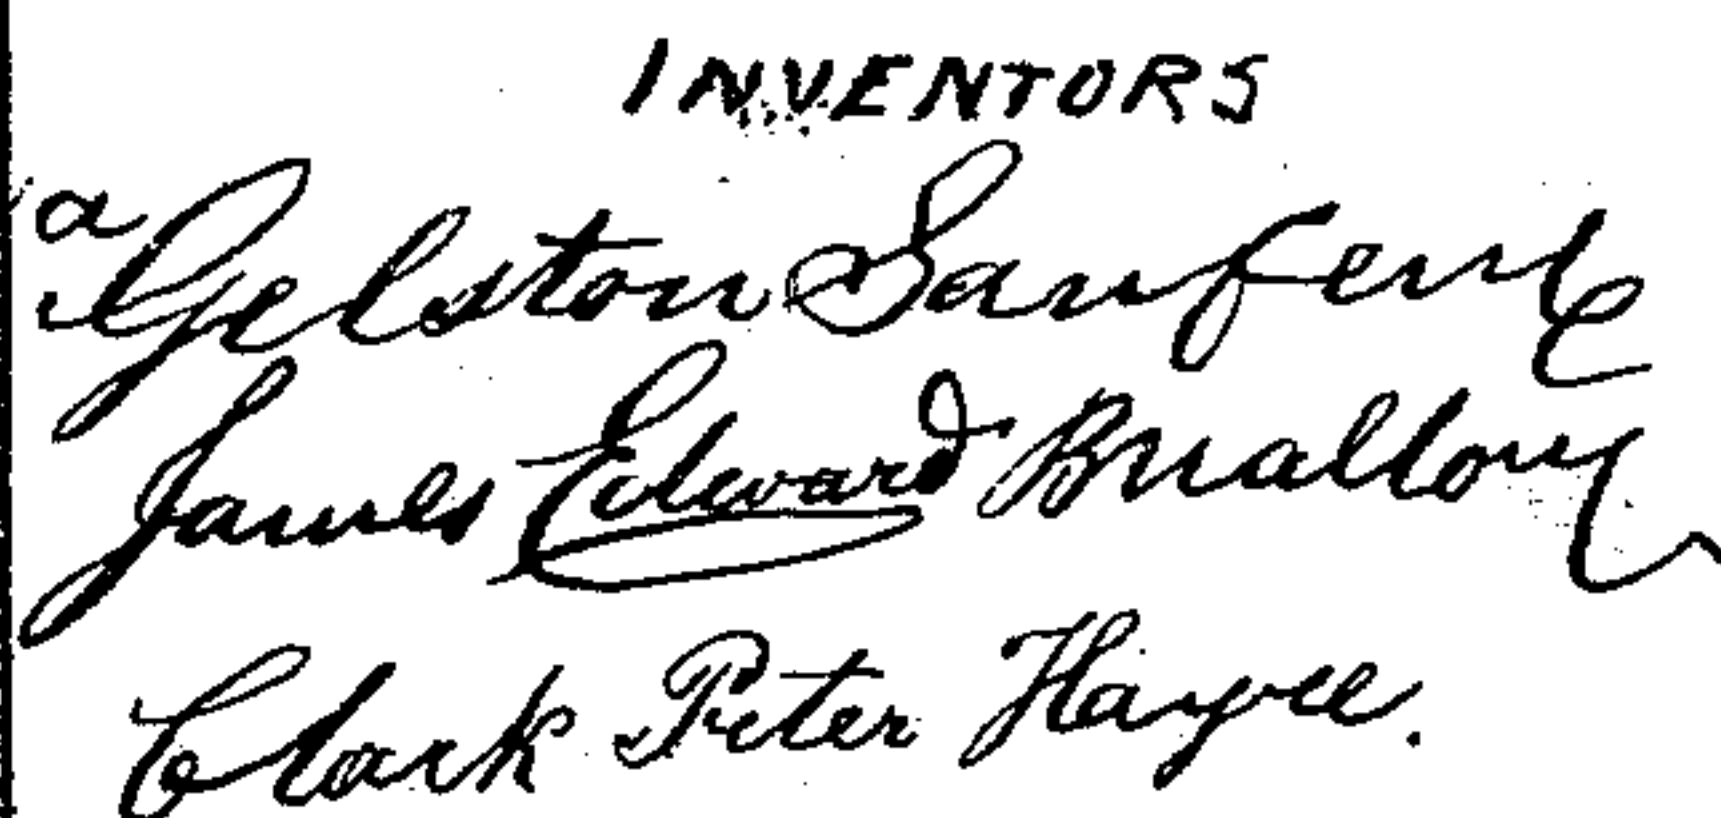 INVENTORS
a Gelston Sanford
James Edward Mallory
Clark Peter